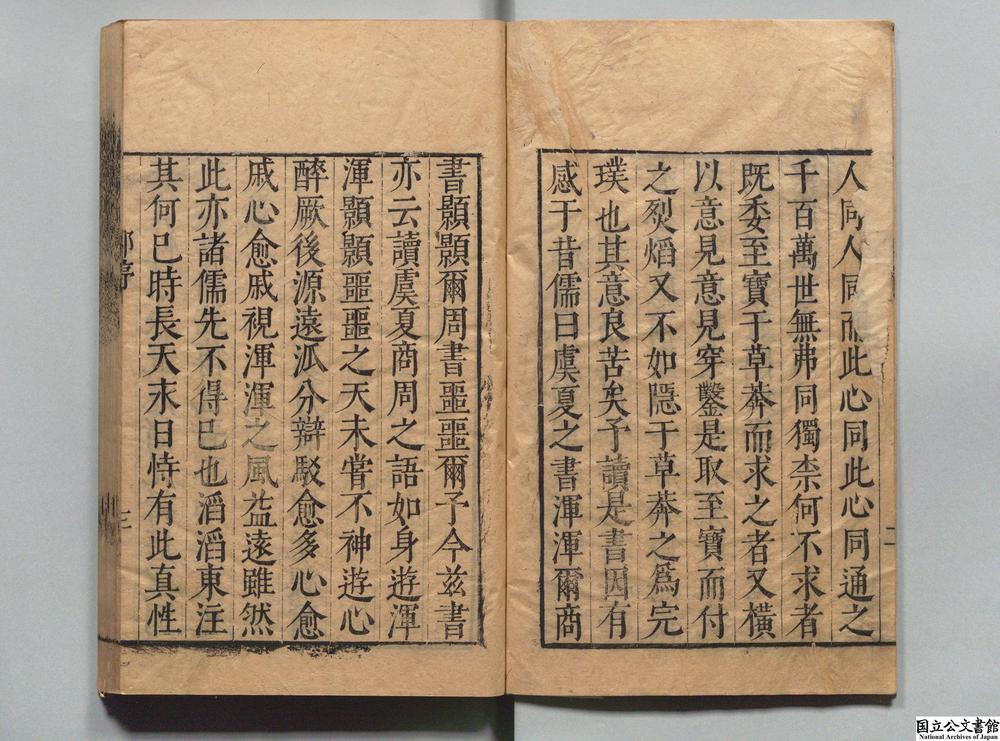 人同人同而此心同此心同通之
千百萬世無弗同獨柰何不求者
既委至寶于草莽而求之者又橫
以意見意見穿鑿是取至寶而付
之烈熖又不如隱于草莽之爲完
璞也其意良苦矣予讀是書因有
感于昔儒曰虞夏之書渾渾爾商
二
書顥顥爾周書噩噩爾予今兹書
亦云讀虞夏商周之語如身遊渾
渾顥顥噩噩之天未嘗不神遊心
醉厥後源遠泒分辯駁愈多心愈
戚心愈戚視渾渾之風益遠雖然
此亦諸儒先不得已也滔滔東注
其何已時長天末日恃有此真性
序
三
国立公文書館
National Archives of Japan